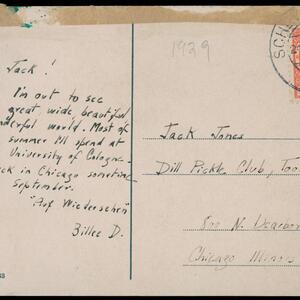 1929
SCH
Jack!
I'm out to see
great wide, beautiful
nderful world. Most of
summer I'll spend at
University of Cologne-
ck in Chicago sometime
September.
"Auf Wiedersehen"
Billee D.
Jack Jones
Dill Pickle Club, Too
800 N. Dearbor
Chicago Illinois